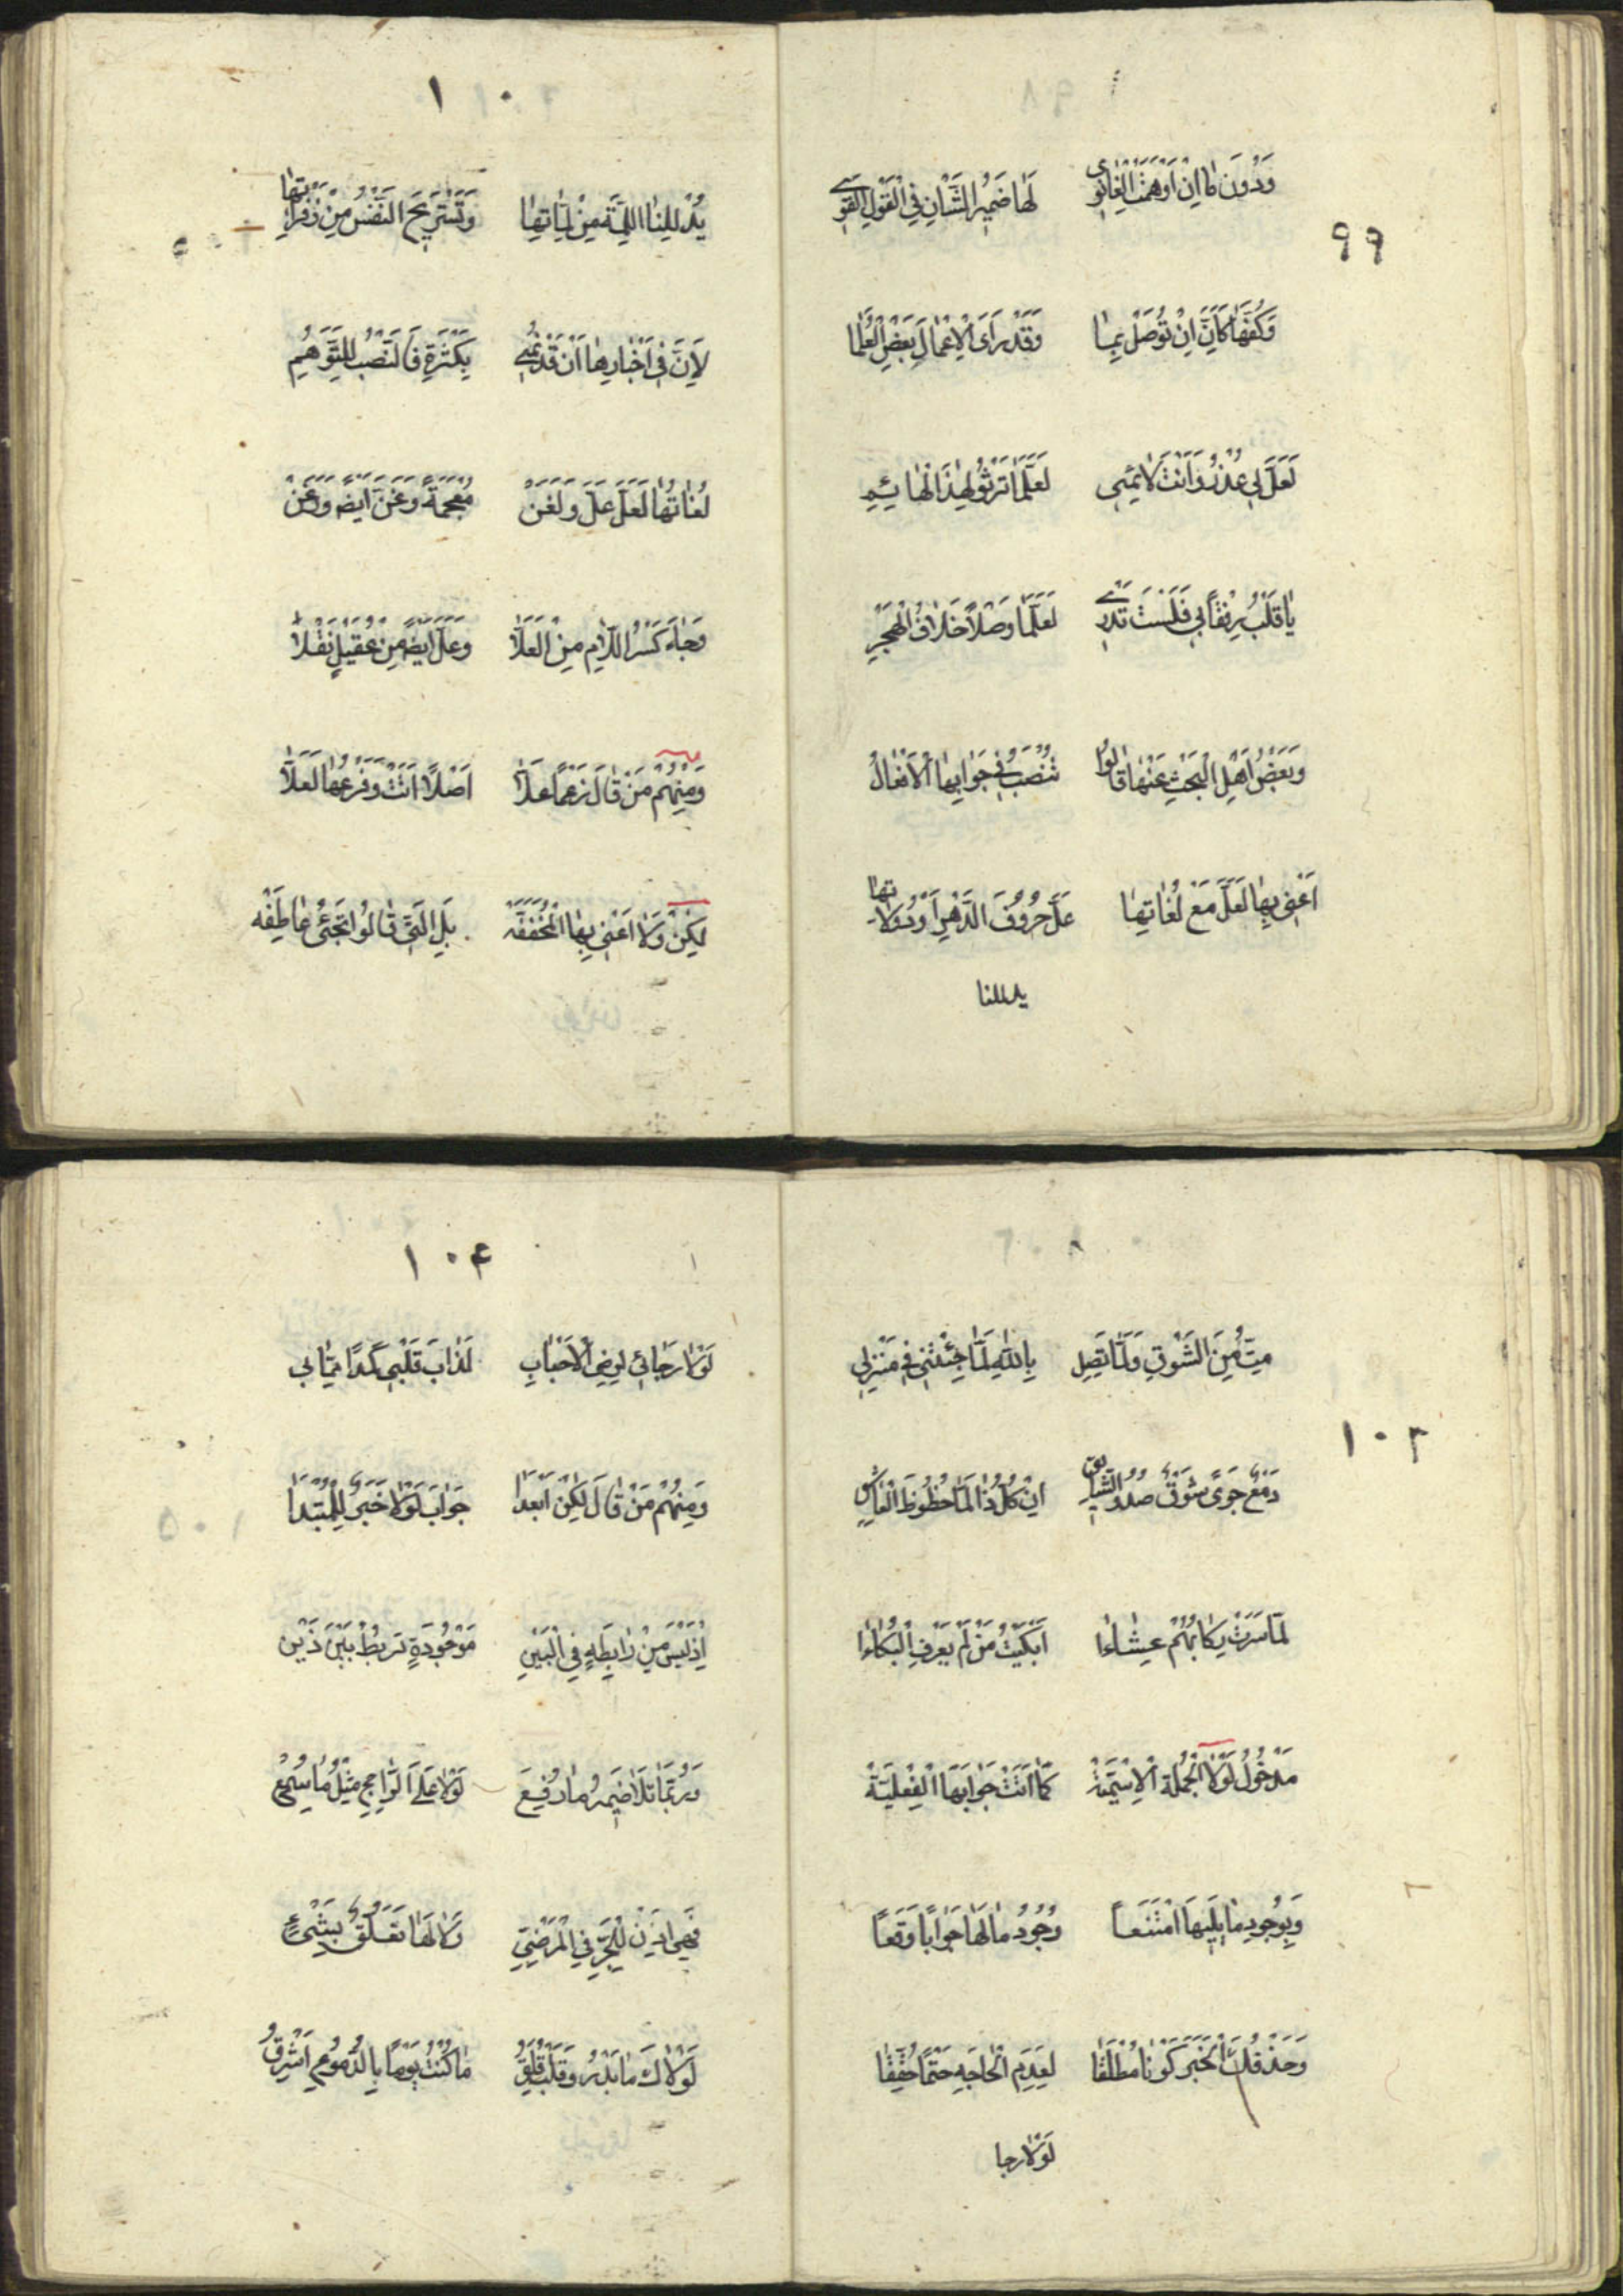 ٩٩
وَدُونَ مَا اِنْ اَوْهَمَتْ الْغَانَوِى لَهَا ضَمِيرُ الشَّانِ فِى الْقَوْلِ الْقَوِى
وَكُفَّهَا كَاَنَّ اِنْ تُوصَلْ بِمَا وَقَدْ رَاَى الْاِعْمَالَ بَعْضُ الْعُلَمَا
لَعَلَّ لِى عُذْرٌ وَاَنْتَ لَائِمِى لَعَلَّمَا تَرْثُو لِهٰذَا الْهَائِمِ
يَا قَلْبُ رِفْقًا بِى فَلَسْتَ تَدْرِى لَعَلَّمَا وَصْلًا خِلَافُ الْهَجْرِ
وَبَعْضُ اَهْلِ الْبَحْثِ عَنْهَا قَالُوا تُنْصَبُ فِى جَوَابِهَا الْاَفْعَالُ
اَعْنِى بِهَا لَعَلَّ مَعْ لُغَاتِهَا عَلَّ حُرُوفَ الدَّهْرِ اَوْ دُولَاتِهَا
يدللنا
١٠
يُدْلِلْنَا اللَّمَّةَ مِنْ لَمَّاتِهَا وَتَسْتَرِيحَ النَّفْسُ مِنْ زَفْرَاتِهَا
لِاَنَّ فِى اَخْبَارِهَا اَنْ قَدْ نُمِى بِكَثْرَةٍ فَالنَّصْبُ لِلتَّوَهُّمِ
لُغَاتُهَا لَعَلَّ عَلَّ وَلَغَنْ مُعْجَمَةً وَغَنَّ اَيْضًا وَعَنْ
وَجَاءَ كَسْرُ اللَّامِ مِنْ لَعَلَّا وَعَلَّ اَيْضًا مِنْ عُقَيْلٍ نَقْلًا
وَمِنْهُمْ مَنْ قَالَ زَعْمًا عَلَّا اَصْلًا اَتَتْ وَفَرْعُهَا لَعَلَّا
لٰكِنْ وَلَا اَعْنِى بِهَا الْمُخَفَّفَه بَلِ الَّتِى قَالُوا تَجِئُ عَاطِفَه
١٠٣
مِتُّ مِنَ الشَّوْقِ وَلَمَّا يَصِلِ بِاللّٰهِ لَمَّا جِئْتَنِى فِى مَنْزِلِى
دَمْعٌ جَوًى شَوْقٌ صُدُودُ الشَّائِقِ اِنْ كُلُّ ذَا لَمَّا حُظُوظَ الْعَاشِقِ
لَمَّا سَرَتْ رِكَابُهُمْ عِشَاءًا اَبْكَيْتُ مَنْ لَمْ يَعْرِفِ الْبُكَاءَا
مَدْخُولُ لَوْلَا الْجُمْلَةُ الْاِسْمِيَّة كَمَا اَتَتْ جَوَابَهَا الْفِعْلِيَّة
وَبِوُجُودِ مَا يَلِيهَا امْتَنَعَا وُجُودُ مَا لَهَا جَوَابًا وَقَعَا
وَحَذْفُكَ الْخَبَرَ كَوْنًا مُطْلَقَا لِعَدَمِ الْحَاجَةِ حَتْمًا حُقِّقَا
لولا رجا
١٠٤
لَوْلَا رَجَائِى لِرِضَى الْاَحْبَابِ لَذَابَ قَلْبِى كَمَدًا مِمَّا بِى
وَمِنْهُمُ مَنْ قَالَ لٰكِنْ اَبْعَدَا جَوَابَ لَوْلَا خَبَرٌ لِلْمُبْتَدَا
اِذْ لَيْسَ مِنْ رَابِطَةٍ فِى الْبَيْنِ مَوْجُودَةٍ تَرْبُطُ بَيْنَ ذَيْنِ
وَرُبَّمَا تَلَا ضَمِيرٌ مَا رُفِعَ لَوْلَا عَلَى الرَّاجِحِ مِثْلُ مَا سُمِعَ
فَهْىَ اِذَنْ لِلْجَرِّ فِى الْمَرْضِىِّ وَلَا لَهَا تَعَلُّقٌ بِشَيْءٍ
لَوْلَاكَ مَا بَدْرُ وَقَلْبٌ قَلِقٌ مَا كُنْتُ يَوْمًا بِالدُّمُوعِ اَشْرَقُ